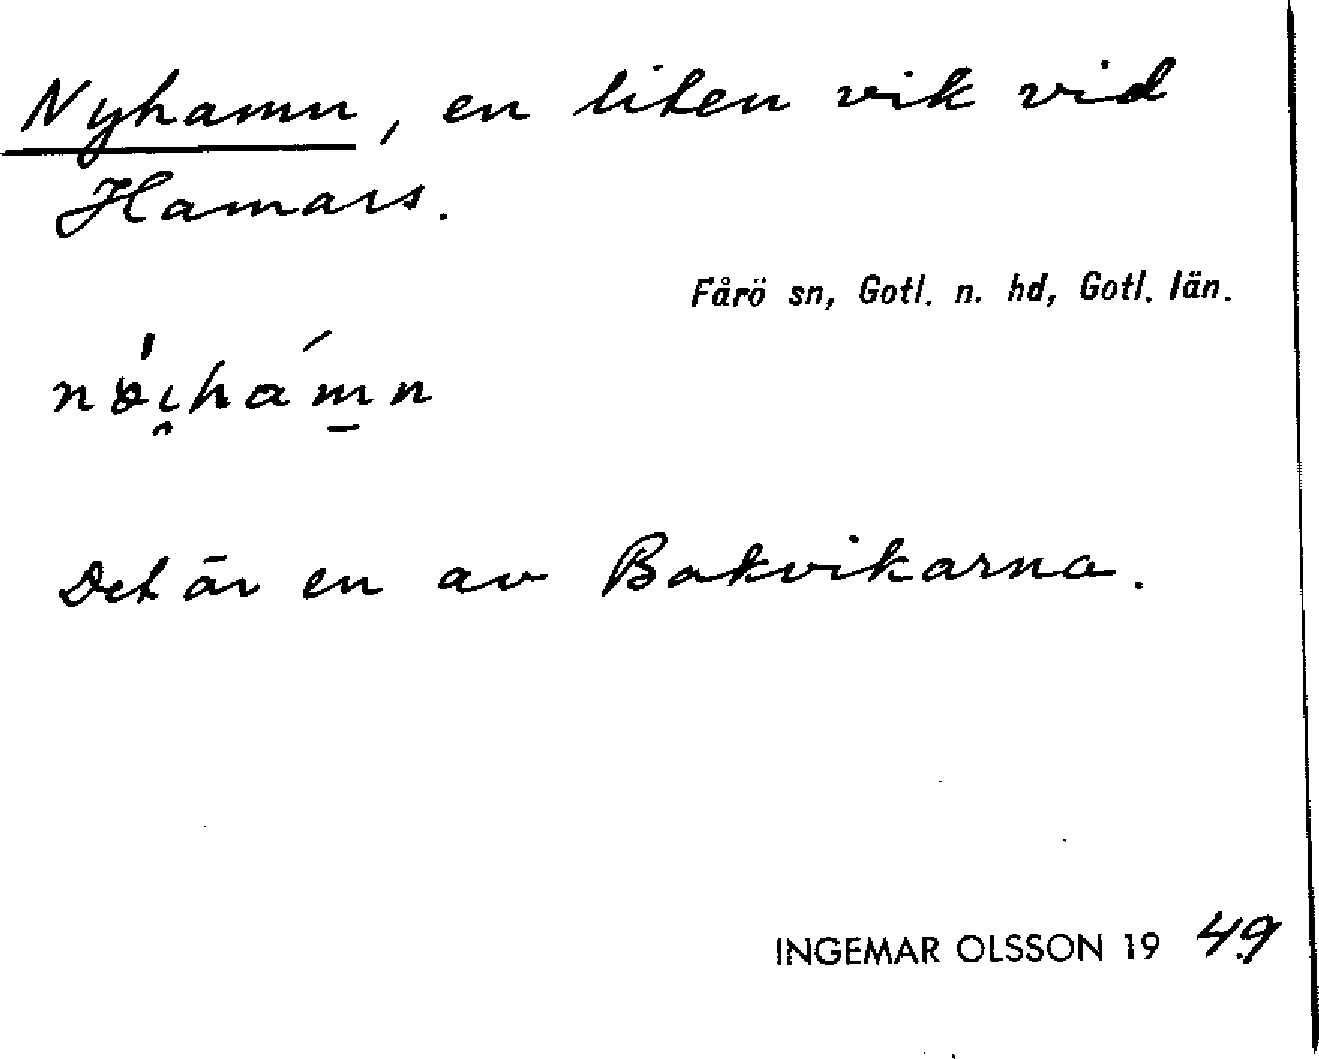 Nyhamn, en liten vik vid
Hamars.
Fårö sn, Gotl. n. hd, Gotl. län.
Det är en av Bakvikarna.
INGEMAR OLSSON 19 49